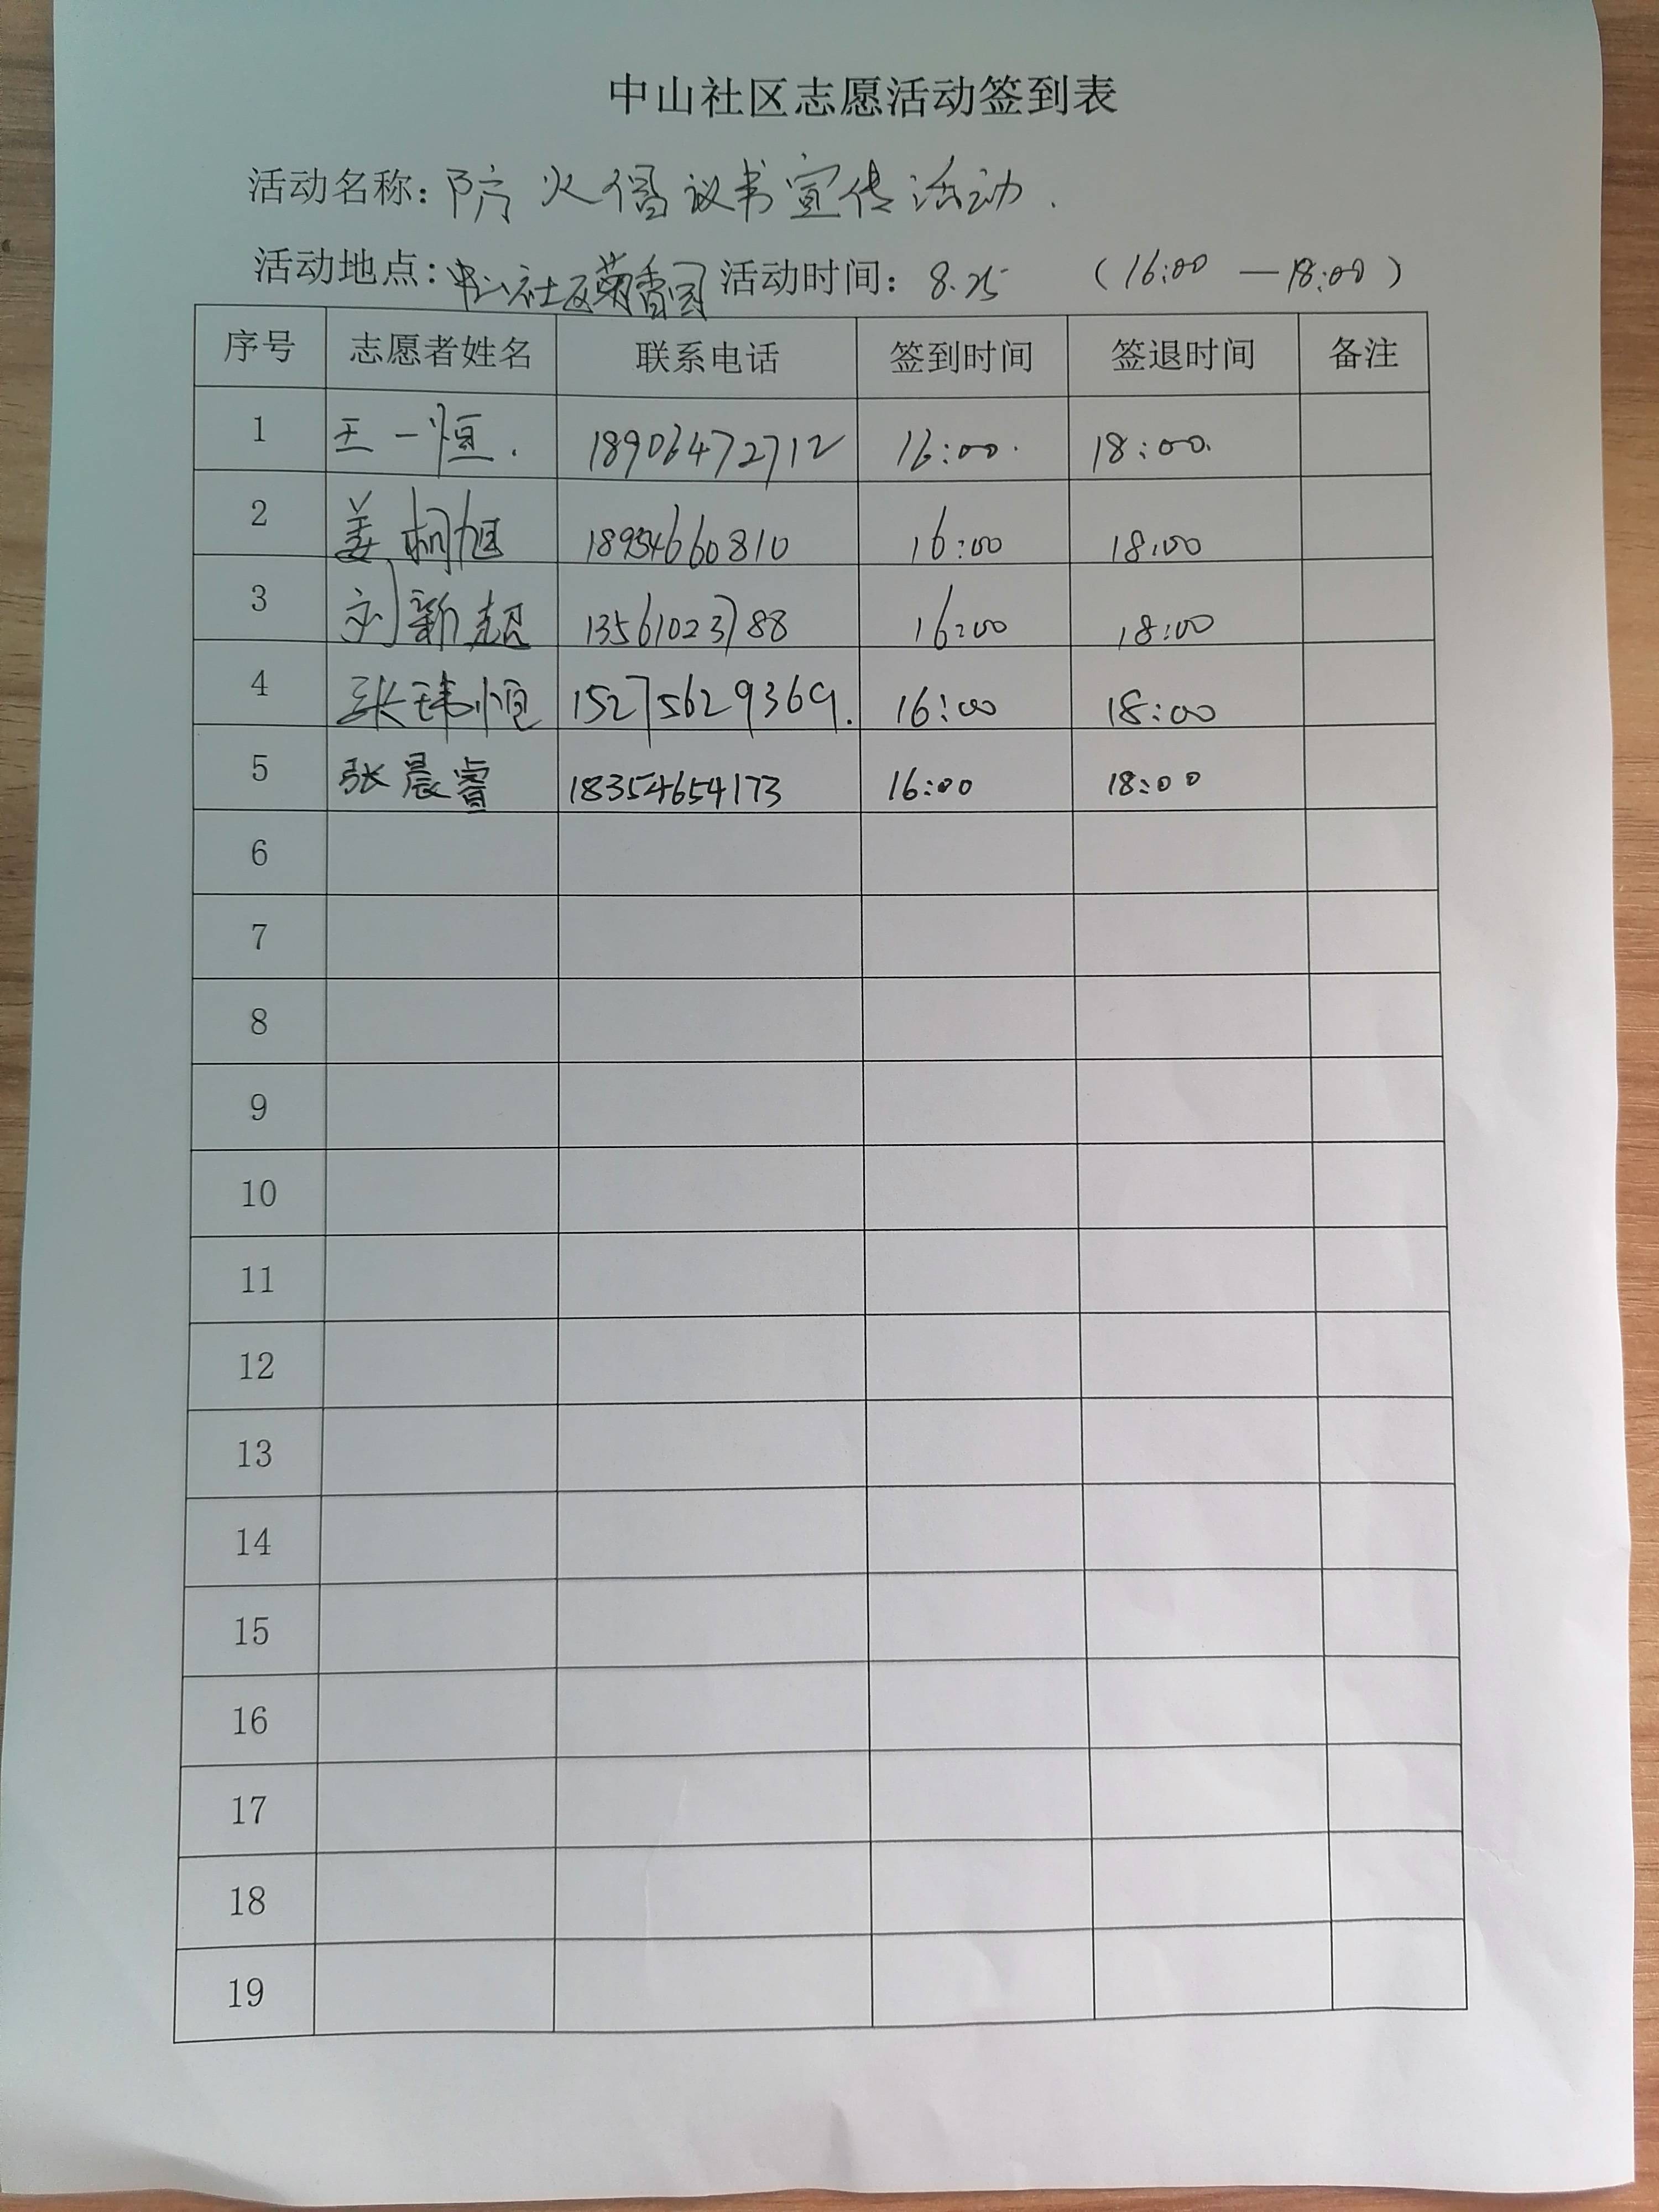 中山社区志愿活动签到表
活动名称：防火倡议书宣传活动.
活动地点：中山社区菊香园 活动时间：8.25 （16:00 — 18:00）
序号 志愿者姓名 联系电话 签到时间 签退时间 备注
1 王一恒. 18906472712 16:00. 18:00.
2 姜柯旭 18954660810 16:00 18:00
3 刘新超 13561023788 16:00 18:00
4 张玮恒 15275629369. 16:00 18:00
5 张晨睿 18354654173 16:00 18:00
6
7
8
9
10
11
12
13
14
15
16
17
18
19